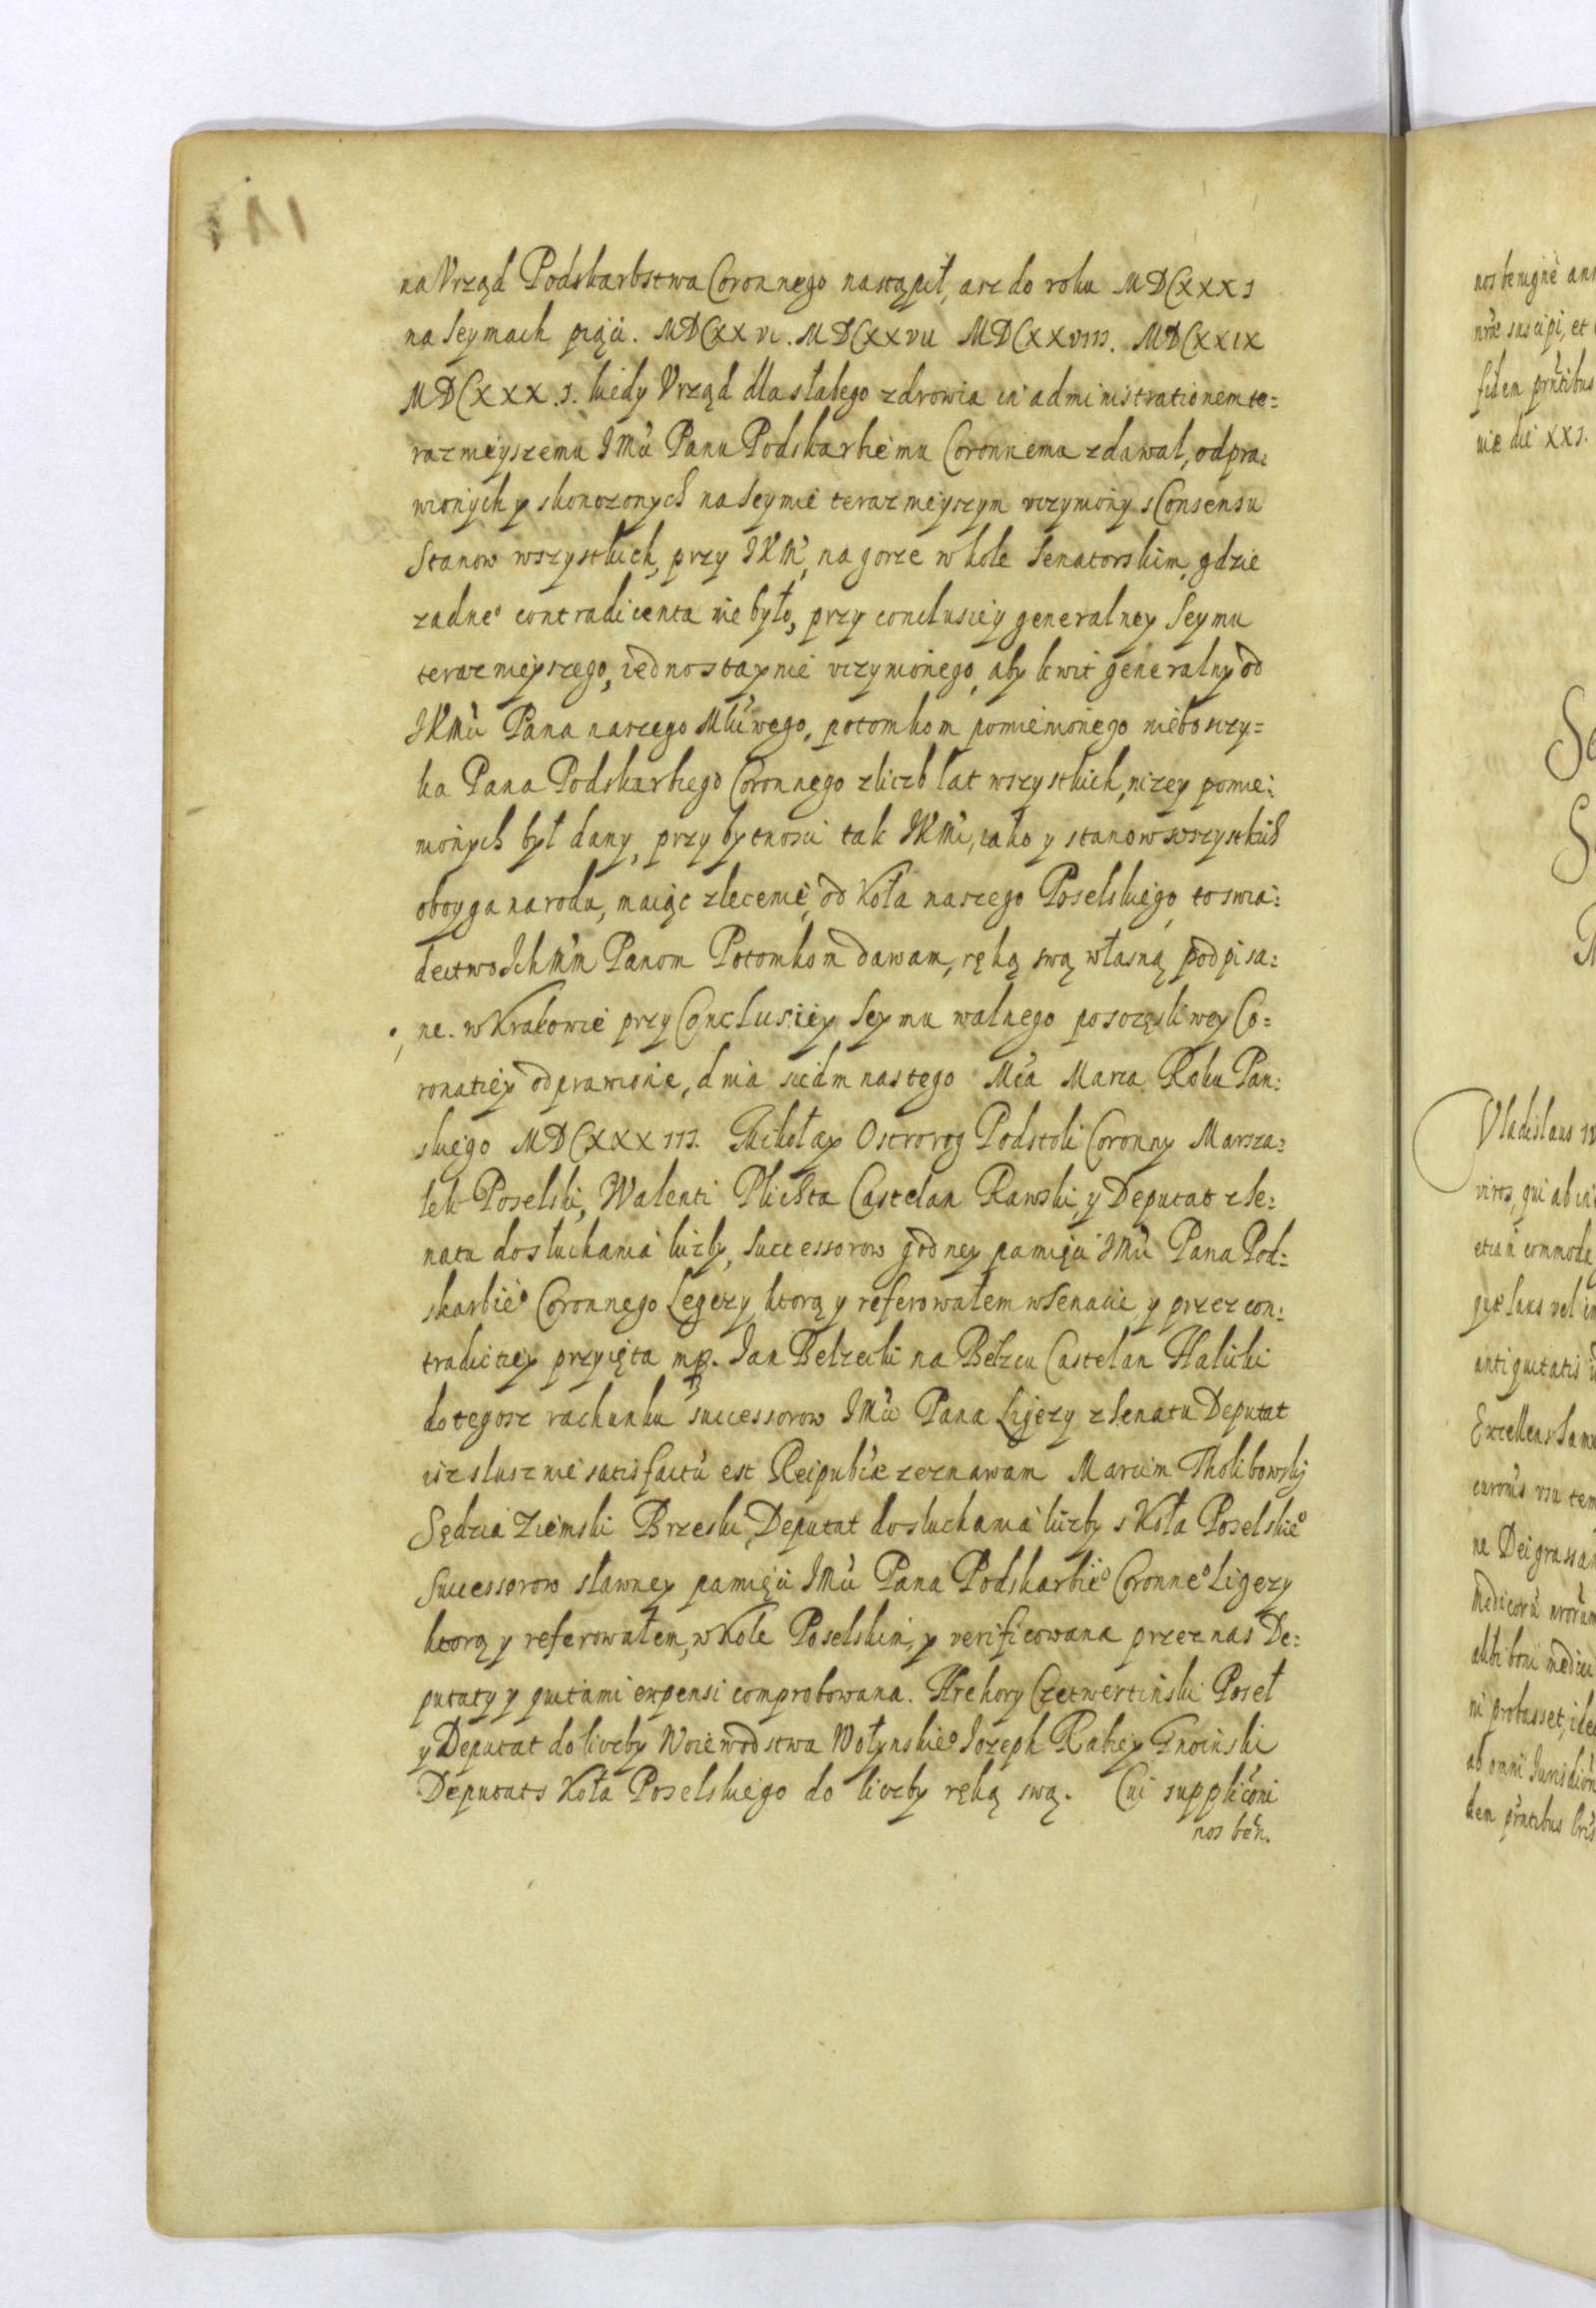 na Vrząd Podskarbstwa Coronnego nastąpił, asz do roku MDCXXXI
na Seymach piąci. MDCXXVI. MDCXXVII MDCXXVIII. MDCXXIX
MDCXXX.I. kiedy Vrząd dla słabego zdrowia in administrationem te=
raznieyszemu IMci Panu Podskarbiemu Coronnemu zdawał, odpra=
wionych y skonczonych na Seymie teraznieyszym vczyniony s Consensu
Stanow wszystkich, przy IKM, na gorze w kole Senatorskim, gdzie
zadneo contradicenta nie było, przy conclusiey generalney Seymu
teraznieyszego, iednostaynie vczynionego, aby kwit generalny od
IKMci Pana naszego Mciwego, potomkom pomienionego nieboszczy=
ka Pana Podskarbiego Coronnego z liczb lat wszystkich, nizey pomie=
nionych był dany, przy bytnosci tak IKMci, iako y stanow wszystkich
oboyga narodu, maiąc zlecenie, od Koła naszego Poselskiego, to swia=
dectwo IchMm Panom Potomkom dawam, ręką swą własną podpisa=
ne. w Krakowie przy Conclusiey Seymu walnego posczęsliwey Co=
ronatiey odprawione, dnia siedmnastego Mca Marca Roku Pan=
skiego MDCXXXIII. Mikołay Ostrorog Podstoli Coronny Marsza=
łek Poselski, Walenti Plichta Castelan Rawski, y Deputat z Se=
natu do słuchania liczby, Successorow godney pamięci IMci Pana Pod=
skarbieo Coronnego Legezy, ktorą y referowałem w Senacie y przez con=
tradictiey przyięta mp. Ian Bełzecki na Bełzcu Castelan Halicki
do tegosz rachunku successorow IMci Pana Ligęzy z Senatu Deputat
isz slusznie satisfactu est Reipublcæ zeznawam Marcim Tholibowskj
Sędzia Ziemski Brzeski, Deputat do słuchania liczby s Koła Poselskieo
Successorow sławney pamięci IMci Pana Podskarbieo Coronneo Ligezy
ktorą y referowałem, w Kole Poselskim, y verificowana przez nas De=
putaty y quitami expensi comprobowana. Hrehory Czetwertinski Poseł
y Deputat do liczby Woiewodstwa Wołynskieo Iozeph Rabiey Gnoinski
Deputat s Koła Poselskiego do liczby ręką swą. Cui supplicōni
nos ben.
nos benignè
nræ suscipi, et
fidem prntibus
nie die XXI.
Vladislaus IV
viros, qui ab
etiam commoda
quæ laus vel
antiquitatis
Excellens
na Dei
ni probasset, idea
ab omni Iurisdiōn